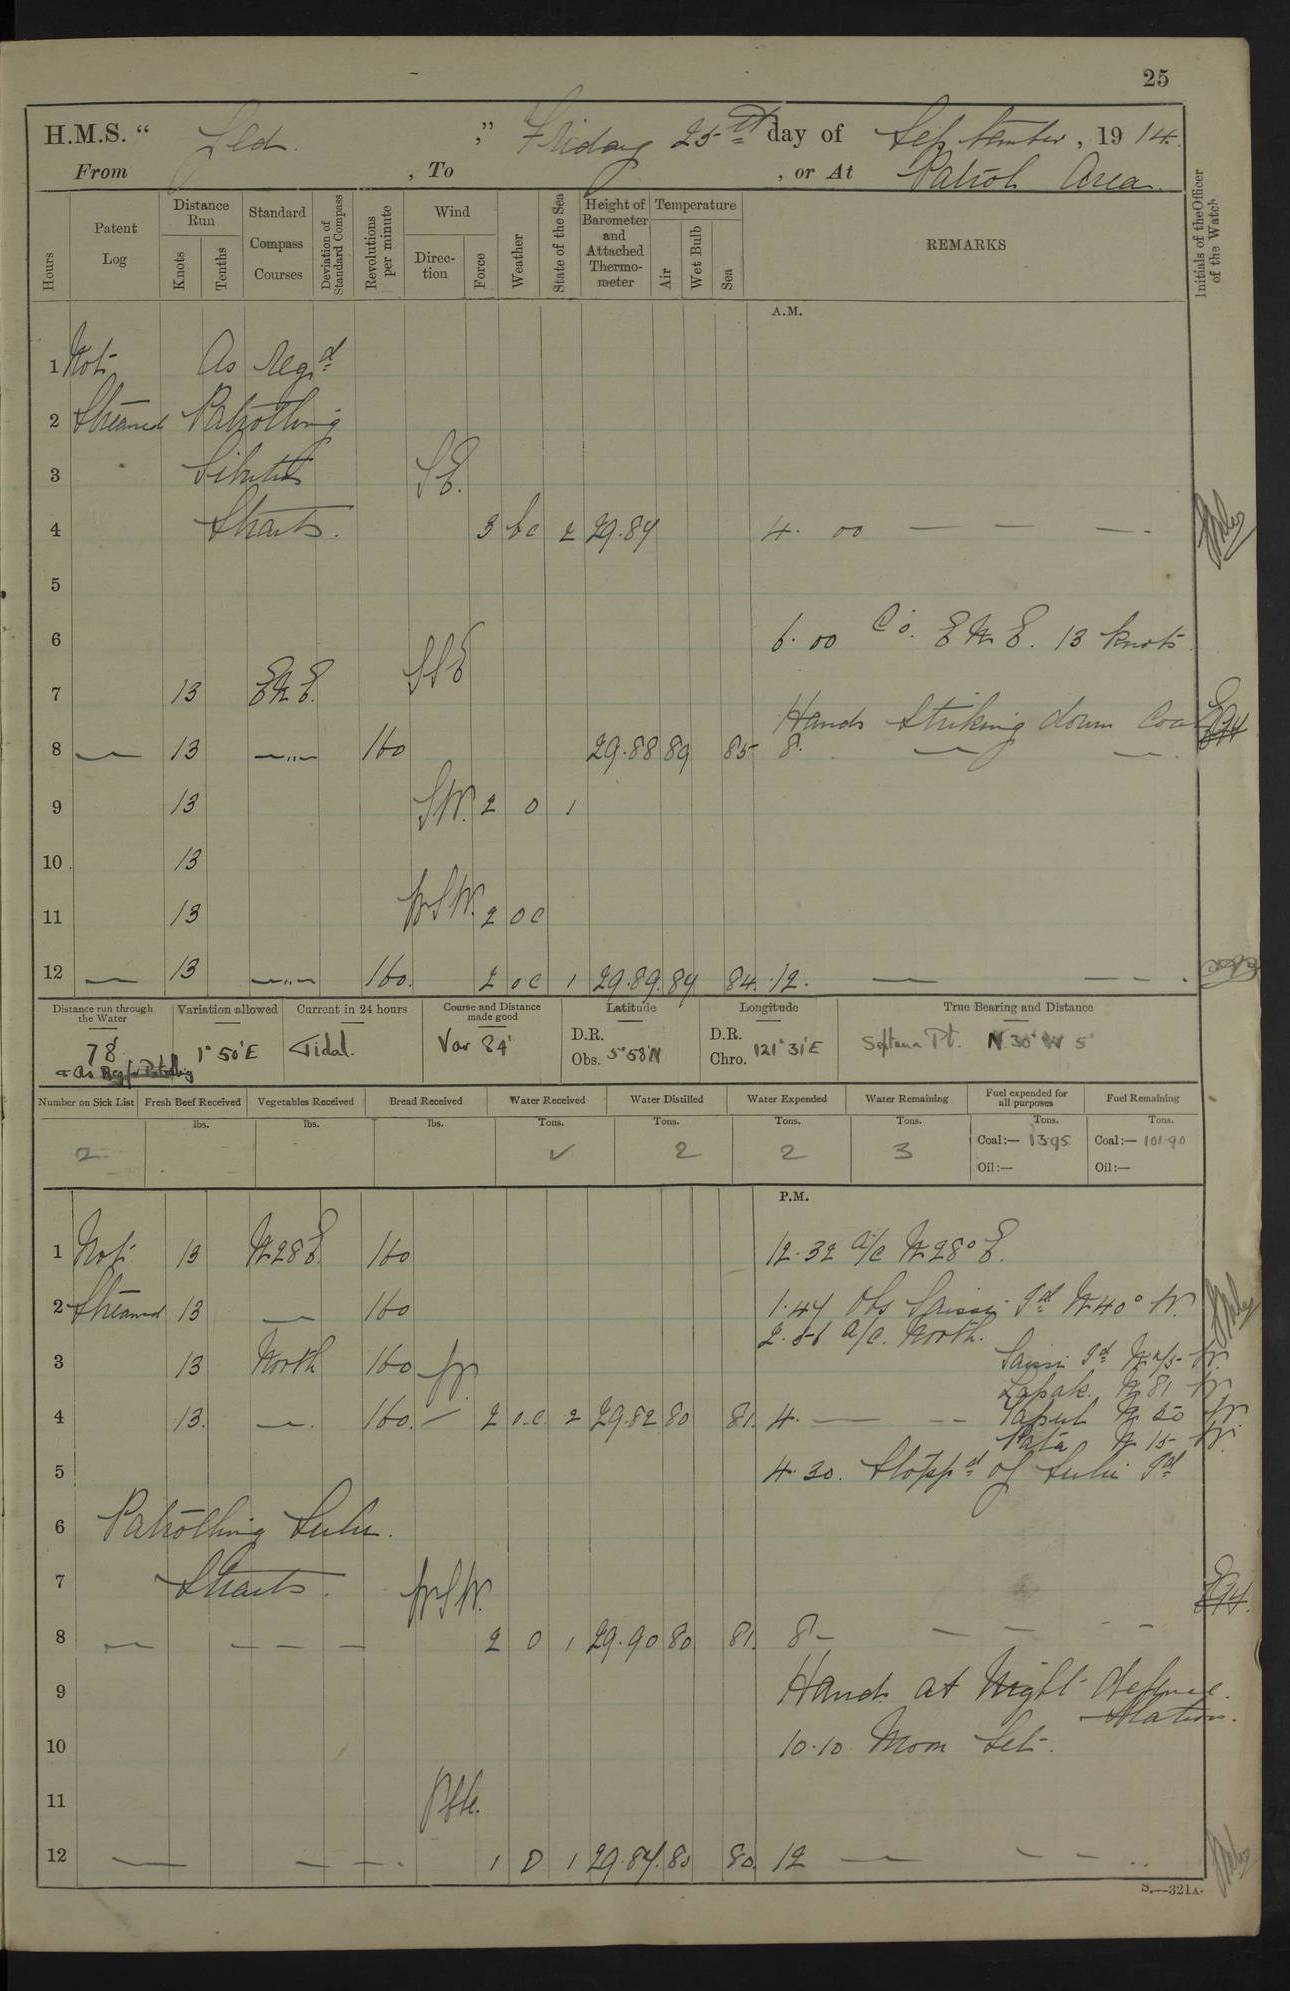 25
H.M.S. " Yed ," Friday 25th day of September, 1914.
From , To , or At Patrol Area.
Hours
Patent Log
Distance Run
Knots
Tenths
Standard Compass Courses
Deviation of Standard Compass
Revolutions per minute
Wind
Direction
Force
Weather
State of the Sea
Height of Barometer and Attached Thermometer
Temperature
Air
Wet Bulb
Sea
REMARKS
Initials of the Officer of the Watch
A.M.
1 Not As Reqd
2 Streamed Patrolling
3 Sibutu S E.
4 Straits. 3 bc 2 29.84 4. 00 — — —
5
6 6. 00 Co. E N E. 13 knots
7 13 E N E. S S E
Hands striking down Coal
8 — 13 —„— 160 29.88 89 85 8. — —
9 13 S W. 2 o 1
10 13
11 13 W S W. 2 o c
12 — 13 —„— 160. 2 o c 1 29.89 84 84. 12. — — .
Distance run through the Water
78
Variation allowed
1° 50' E
Current in 24 hours
Tidal.
Course and Distance made good
Var 84'
Latitude
D.R.
Obs. 5° 58' N
Longitude
D.R.
Chro. 121° 31' E
True Bearing and Distance
Pt. N 30° W 5'
Number on Sick List
2
Fresh Beef Received
lbs.
Vegetables Received
lbs.
Bread Received
lbs.
Water Received
Tons.
✓
Water Distilled
Tons.
2
Water Expended
Tons.
2
Water Remaining
Tons.
3
Fuel expended for all purposes
Tons.
Coal:— 13.95
Oil:—
Fuel Remaining
Tons.
Coal:— 101.90
Oil:—
P.M.
1 Not 13 N 28 E 160 12. 32 a/c N 28° E.
2 Streamed 13 — 160 1. 47 Obs Id N 40° W
2. 56 a/c. North.
3 13 North 160 W Id N 45 W.
Lapak. N 81 W
4 13. — 160. — 2 o.c. 2 29.82 80 81. 4. — — Tapul N 50 W
Pata N 15 W.
5 4. 30. Stoppd of Sulu Id
6 Patrolling Sulu.
7 Straits. W S W.
8 — — — — 2 o 1 29.90 80 81. 8 — — — —
9 Hands at Night defence Stations.
10 10.10 Moon Set.
11 Ble.
12 — — — . 1 O 1 29.84. 80 80. 12 — — —
S.—321A.